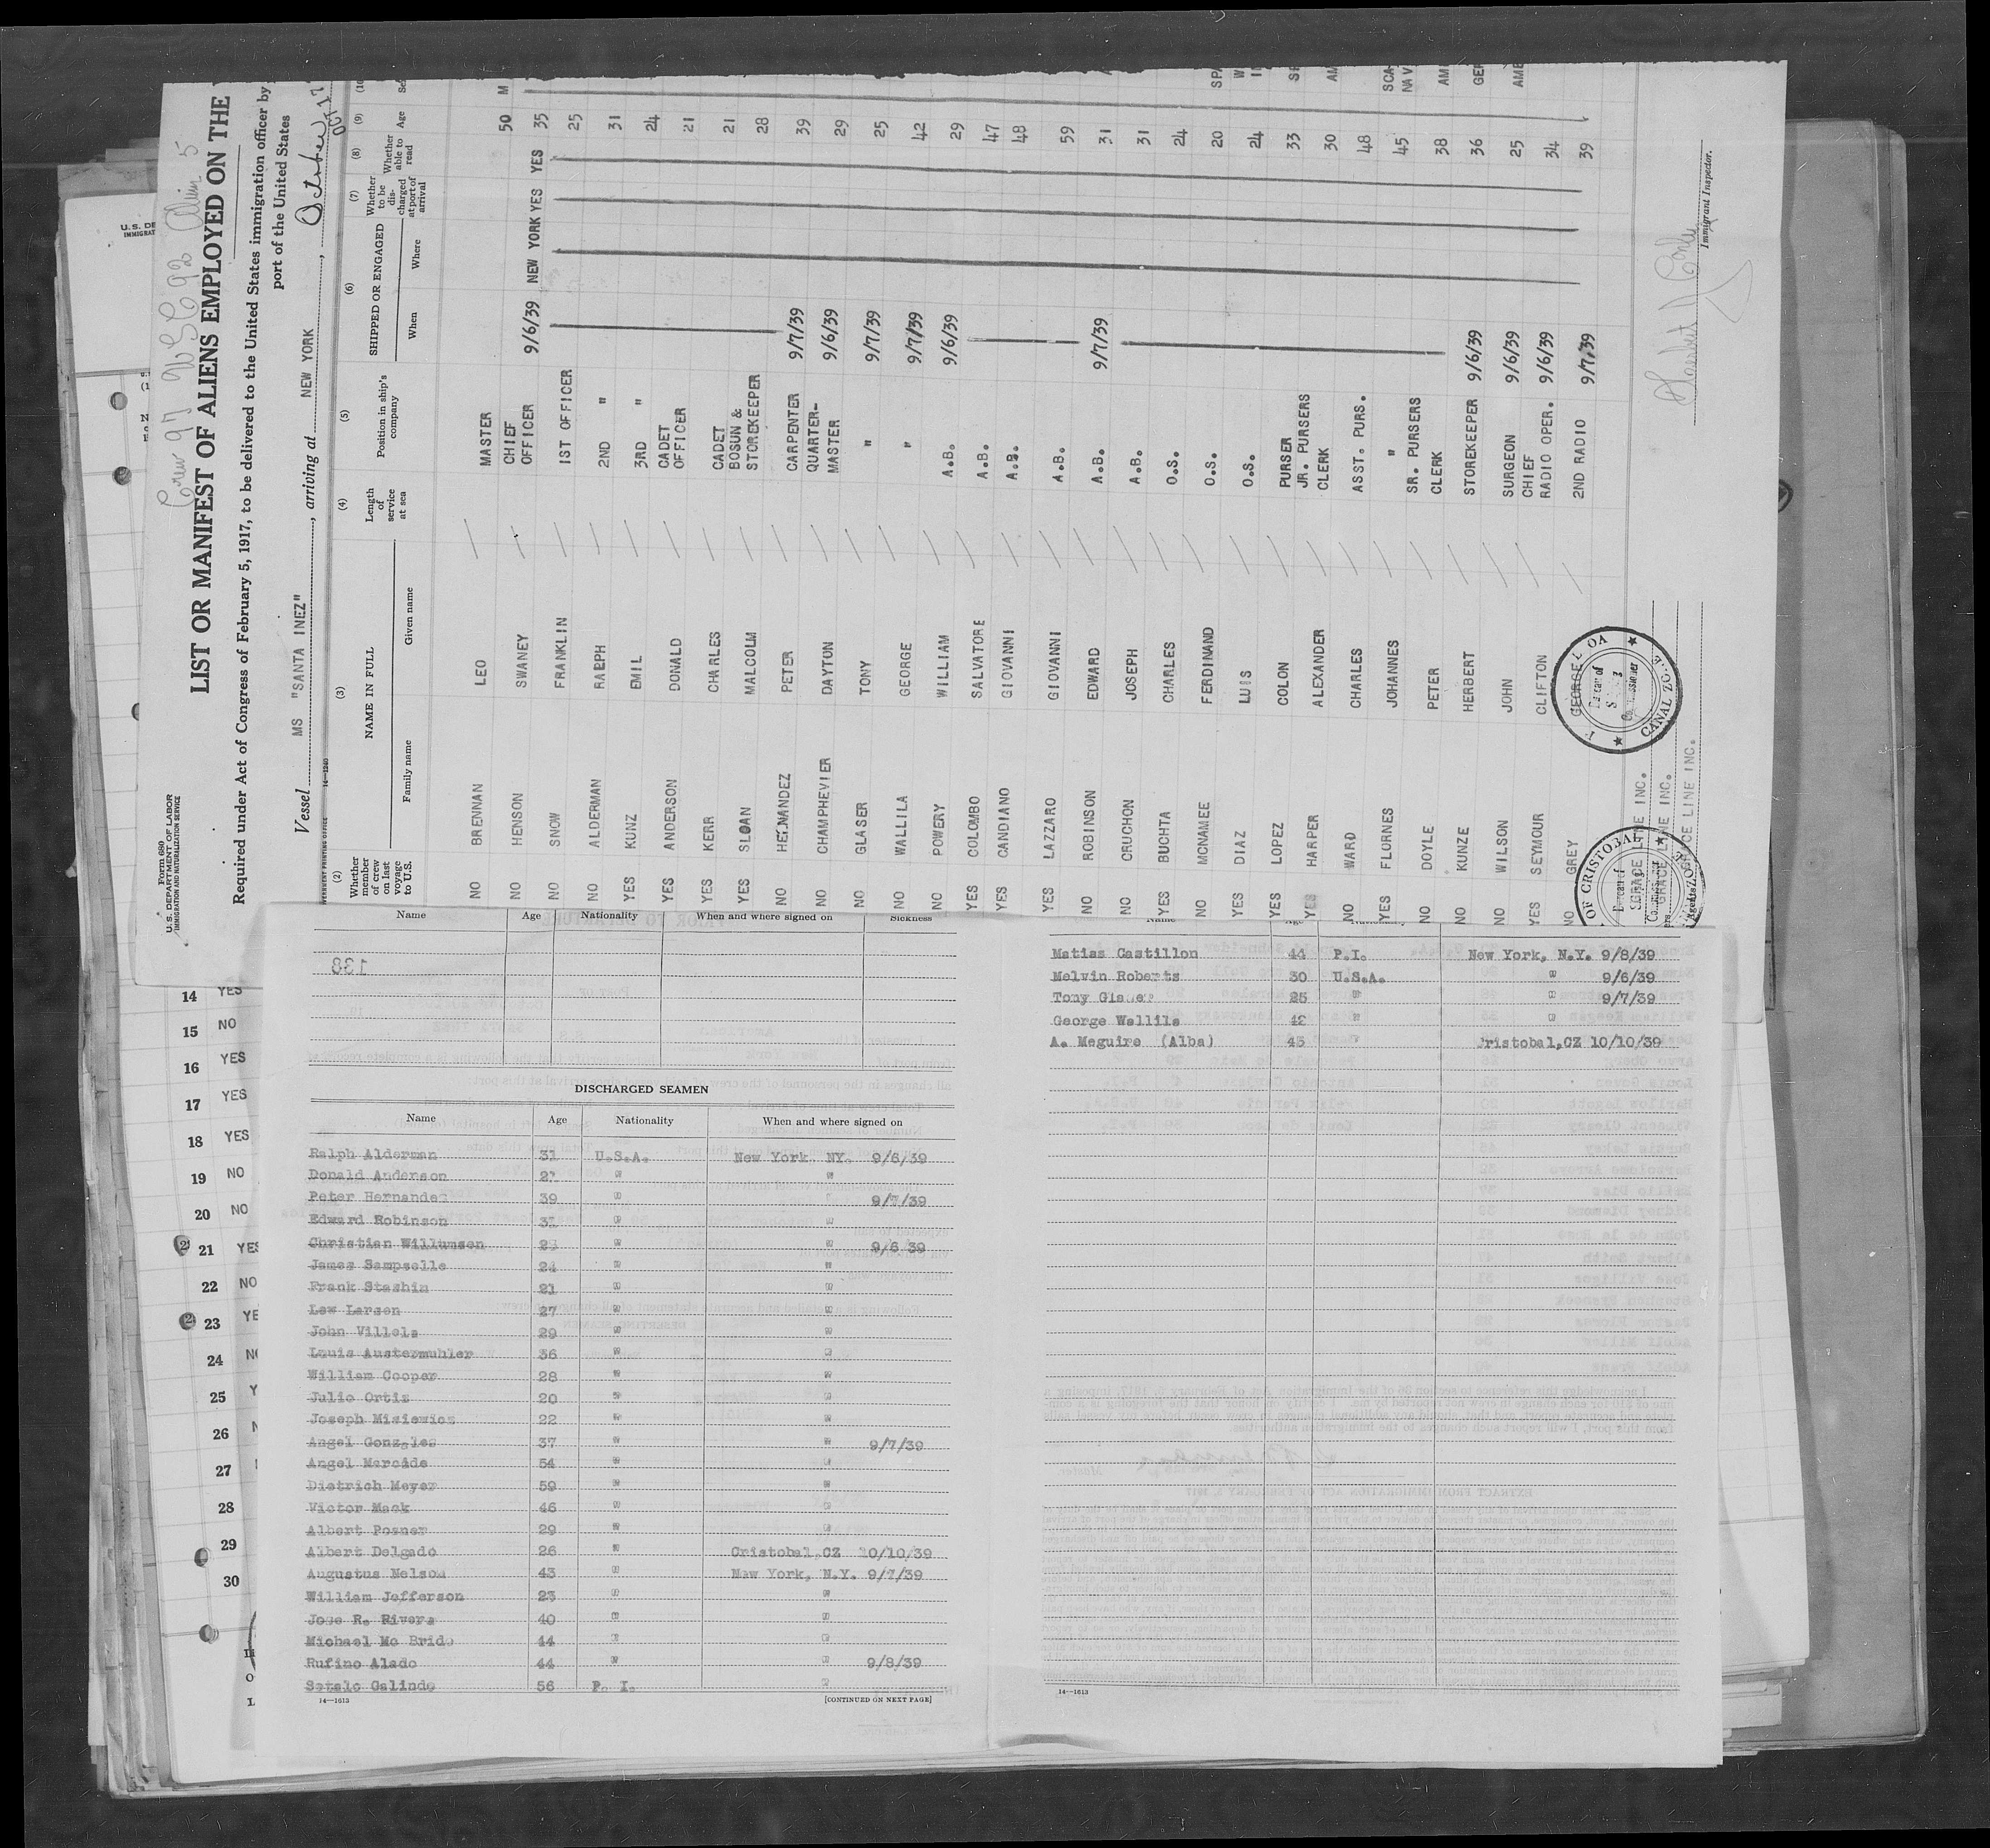 Crew 97 USC 92 Alien 5
Form 680
U. S. DEPARTMENT OF LABOR
IMMIGRATION AND NATURALIZATION SERVICE
LIST OR MANIFEST OF ALIENS EMPLOYED ON THE
Required under Act of Congress of February 5, 1917, to be delivered to the United States immigration officer by
port of the United States
Vessel MS "SANTA INEZ", arriving at NEW YORK, October
OCT 17
(2) (3) (4) (5) (6) (7) (8) (9)
Whether member of crew on last voyage to U.S. NAME IN FULL Length of service at sea Position in ship's company SHIPPED OR ENGAGED Whether to be discharged at port of arrival Whether able to read Age
Family name Given name When Where
NO BRENNAN LEO MASTER 50 M
NO HENSON SWANEY CHIEF OFFICER 9/6/39 NEW YORK YES YES 35
NO SNOW FRANKLIN 1ST OFFICER 25
NO ALDERMAN RALPH 2ND " 31
YES KUNZ EMIL 3RD " 24
YES ANDERSON DONALD CADET OFFICER 21
YES KERR CHARLES CADET 21
YES SLOAN MALCOLM BOSUN & STOREKEEPER 28
NO HERNANDEZ PETER CARPENTER 9/7/39 39
NO CHAMPHEVIER DAYTON QUARTER-MASTER 9/6/39 29
NO GLASER TONY " 9/7/39 25
NO WALLILA GEORGE " 9/7/39 42
NO POWERY WILLIAM A.B. 9/6/39 29
YES COLOMBO SALVATORE A.B. 47
YES CANDIANO GIOVANNI A.B. 48
YES LAZZARO GIOVANNI A.B. 59
NO ROBINSON EDWARD A.B. 9/7/39 31
NO CRUCHON JOSEPH A.B. 31
YES BUCHTA CHARLES O.S. 24
NO MCNAMEE FERDINAND O.S. 20
YES DIAZ LUIS O.S. 24
YES LOPEZ COLON PURSER 33
YES HARPER ALEXANDER JR. PURSERS CLERK 30
NO WARD CHARLES ASST. PURS. 48
YES FLURNES JOHANNES " 45
NO DOYLE PETER SR. PURSERS CLERK 38
NO KUNZE HERBERT STOREKEEPER 9/6/39 36
NO WILSON JOHN SURGEON 9/6/39 25
YES SEYMOUR CLIFTON CHIEF RADIO OPER. 9/6/39 34
NO GREY GEORGE 2ND RADIO 9/7/39 39
GRACE LINE INC.
GRACE LINE INC.
GRACE LINE INC.
CANAL ZONE
OF CRISTOBAL
Immigrant Inspector.
U. S. DE
IMMIGRAT
14 YES
15 NO
16 YES
17 YES
18 YES
19 NO
20 NO
21 YES
22 NO
23 YE
24 NO
25 Y
26
27
28
29
30
Name Age Nationality When and where signed on Sickness
138
DISCHARGED SEAMEN
Name Age Nationality When and where signed on
Ralph Alderman 31 U.S.A. New York NY. 9/6/39
Donald Anderson 21 " "
Peter Hernandez 39 " " 9/7/39
Edward Robinson 31 " "
Christian Willumsen 23 " " 9/6 39
James Sampselle 24 " "
Frank Stashin 21 " "
Lew Larsen 27 " "
John Villela 29 " "
Louis Austermuhler 36 " "
William Cooper 28 " "
Julio Ortiz 20 " "
Joseph Misiewicz 22 " "
Angel Gonzales 37 " " 9/7/39
Angel Mercide 54 " "
Dietrich Meyer 59 " "
Victor Mack 46 " "
Albert Posner 29 " "
Albert Delgado 26 " Cristobal,CZ 10/10/39
Augustus Nelson 43 " New York, N.Y. 9/7/39
William Jefferson 23 " "
Jose R. Rivera 40 " "
Michael Mc Bride 44 " "
Rufino Alado 44 " " 9/8/39
Sotalo Galindo 56 P. I. "
14—1613 [CONTINUED ON NEXT PAGE]
Matias Castillon 44 P.I. New York, N.Y. 9/8/39
Melvin Roberts 30 U.S.A. " 9/6/39
Tony Glaser 25 " " 9/7/39
George Wallila 42 " "
A. Meguire (Alba) 45 " Cristobal,CZ 10/10/39
14—1613